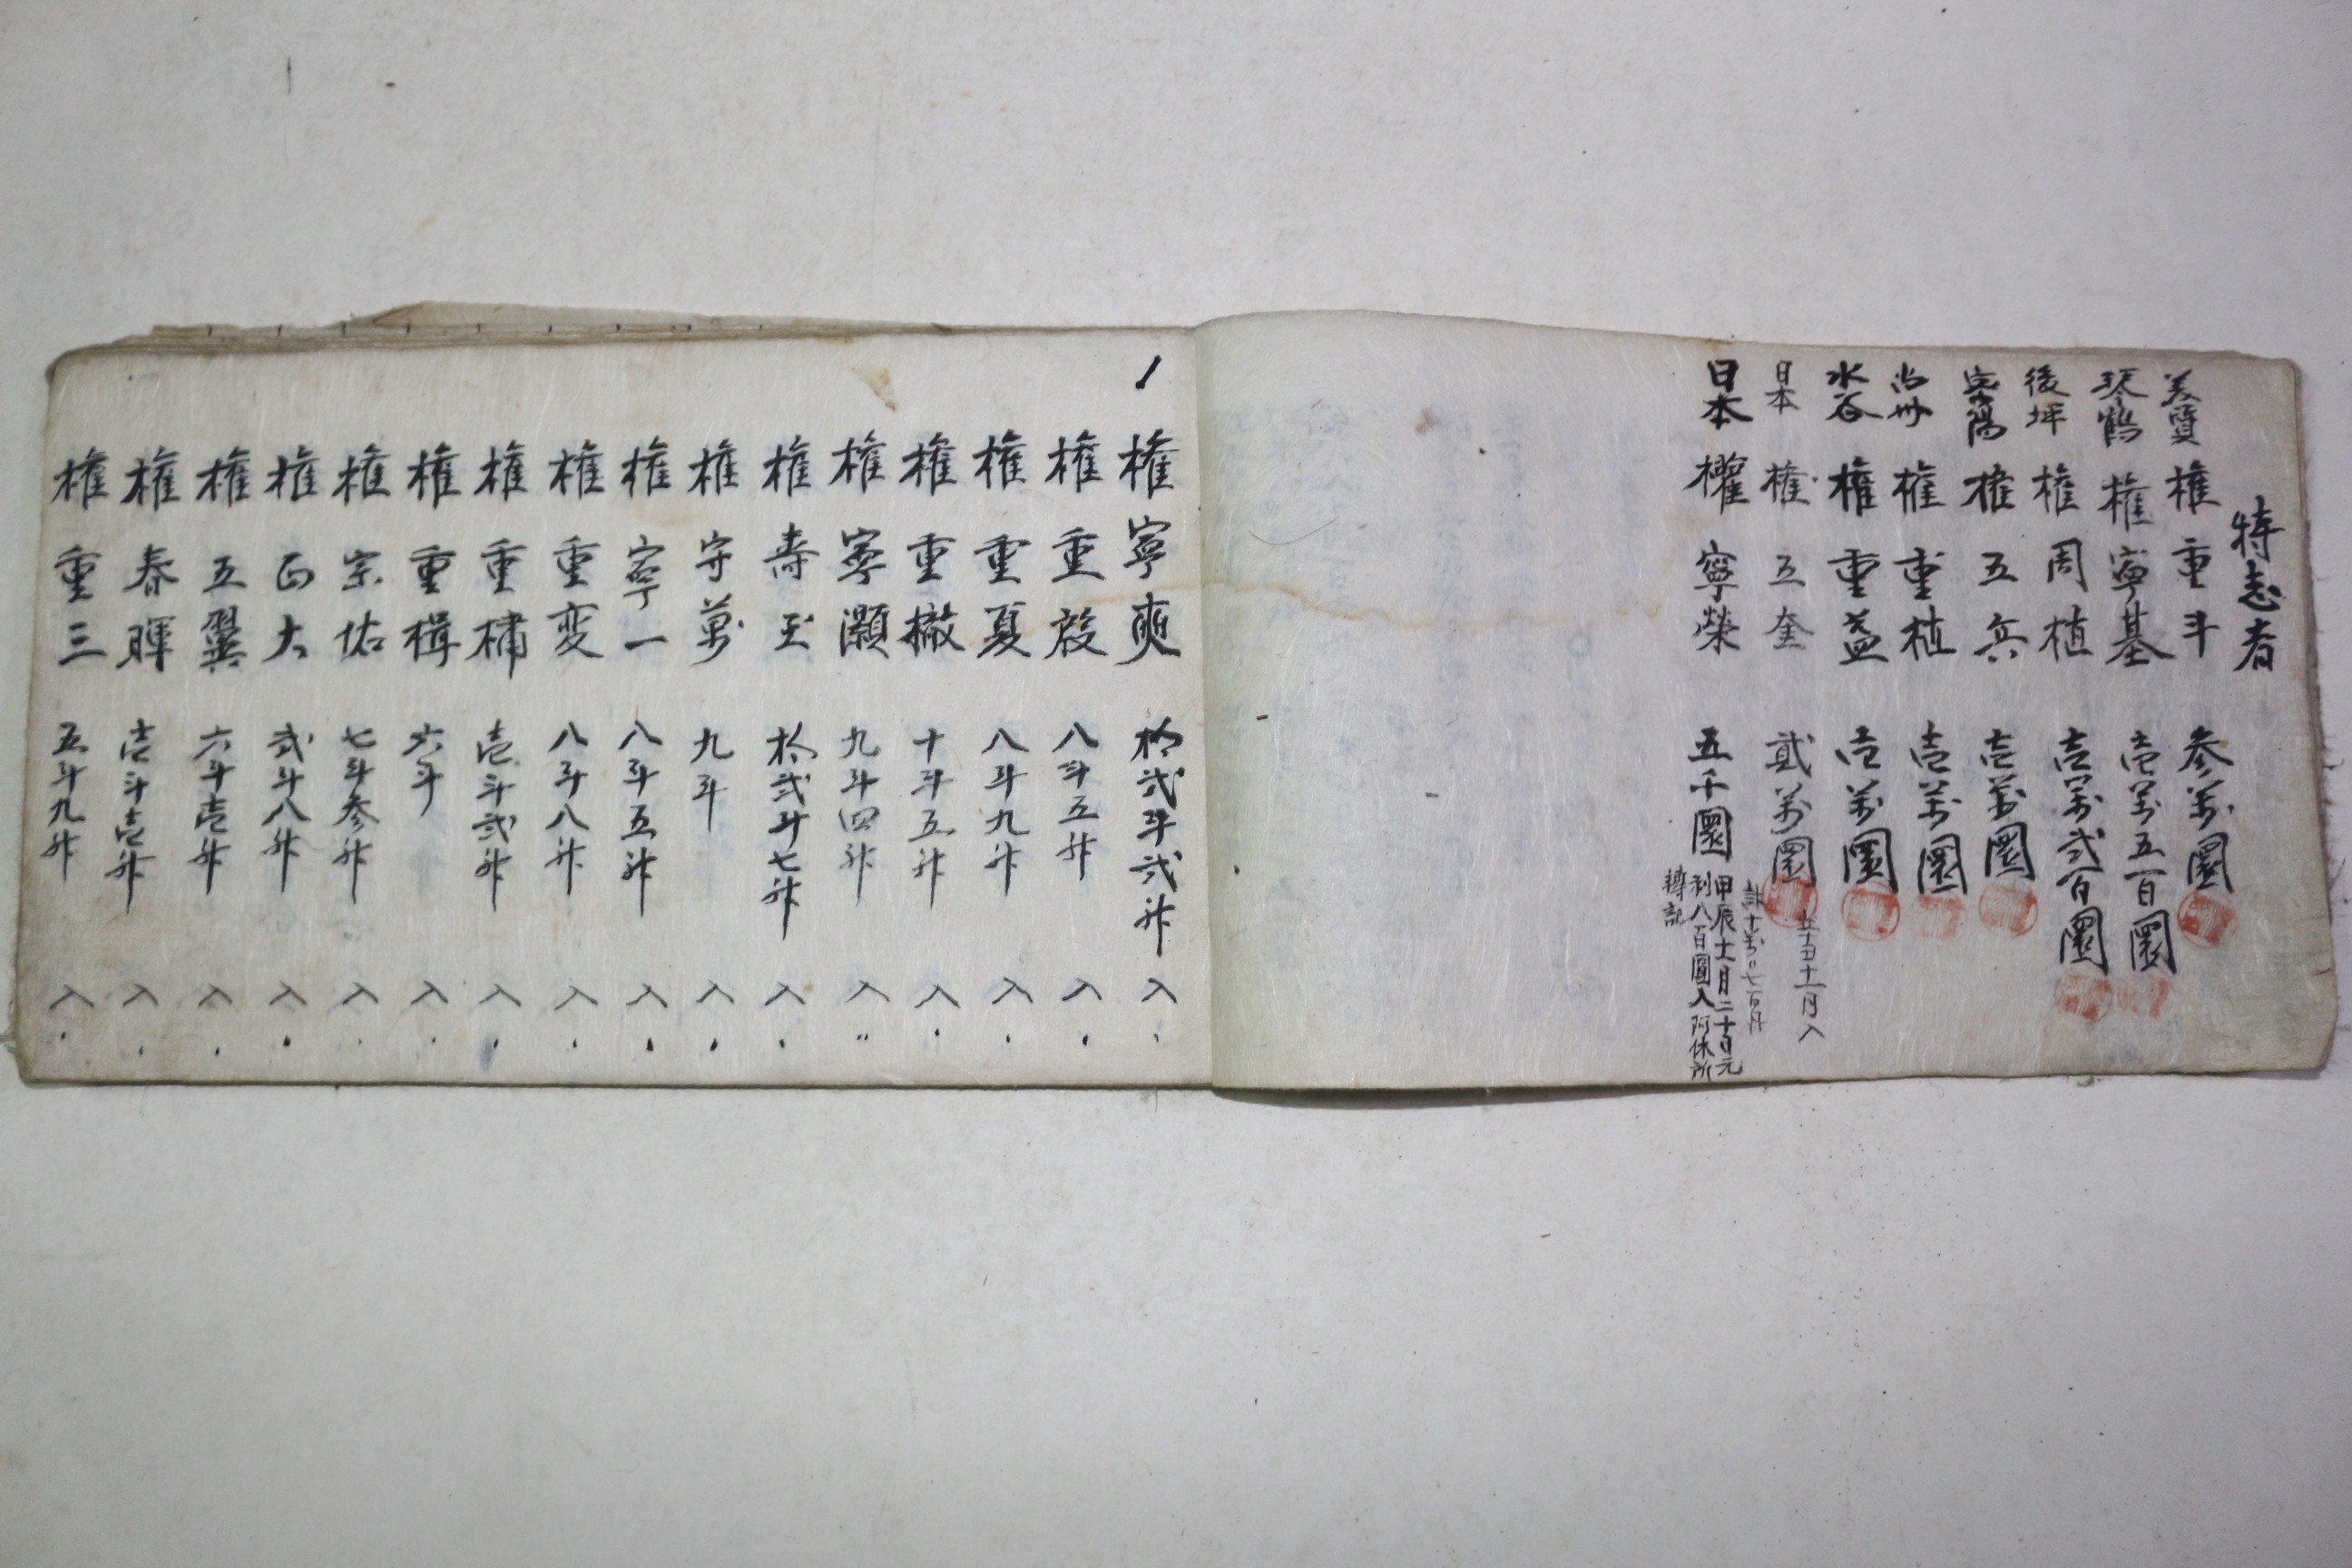 特志者
美質 權重斗 参萬圜
琴鶴 權寧基 壱萬五百圜
後坪 權周植 壱萬弐百圜
宗陽 權五兵 壱萬圜
尚州 權重植 壱萬圜
水谷 權重益 壱萬圜
日本 權五奎 貳萬圜
辛丑十一月入
計十萬〇七百円
日本 權寧榮 五千圜
甲辰十一月二十日元
利八百圓入阿休所
轉記
1
權寧奭 拾弐斗弐升 入
權重殷 八斗五升 入
權重夏 八斗九升 入
權重撤 十斗五升 入
權寧灝 九斗四升 入
權壽玉 拾弐斗七升 入
權守萬 九斗 入
權寧一 八斗五升 入
權重変 八斗八升 入
權重橚 壱斗弐升 入
權重楫 六斗 入
權宗佑 七斗参升 入
權正大 弐斗八升 入
權五翼 六斗壱升 入
權春暉 壱斗壱升 入
權重三 五斗九升 入